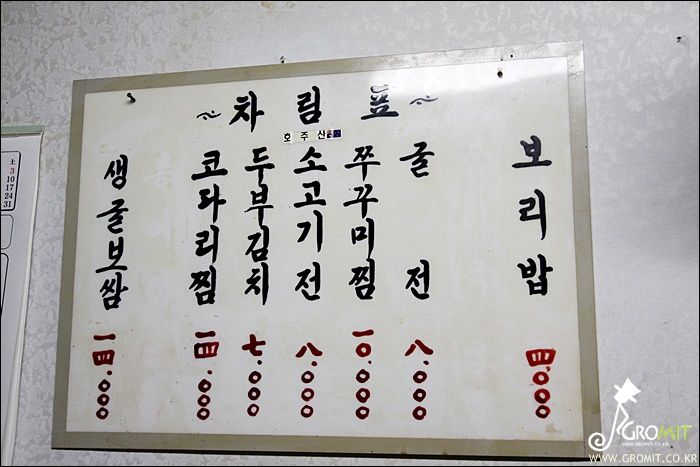 ~차림표~
호주산
보리밥 四,000
굴전 八,000
쭈꾸미찜 一0,000
소고기전 八,000
두부김치 七,000
코다리찜 一四,000
생굴보쌈 一四,000
土
3
10
17
24
31
GROMIT
WWW.GROMIT.CO.KR
WWW.GROMIT.CO.KR